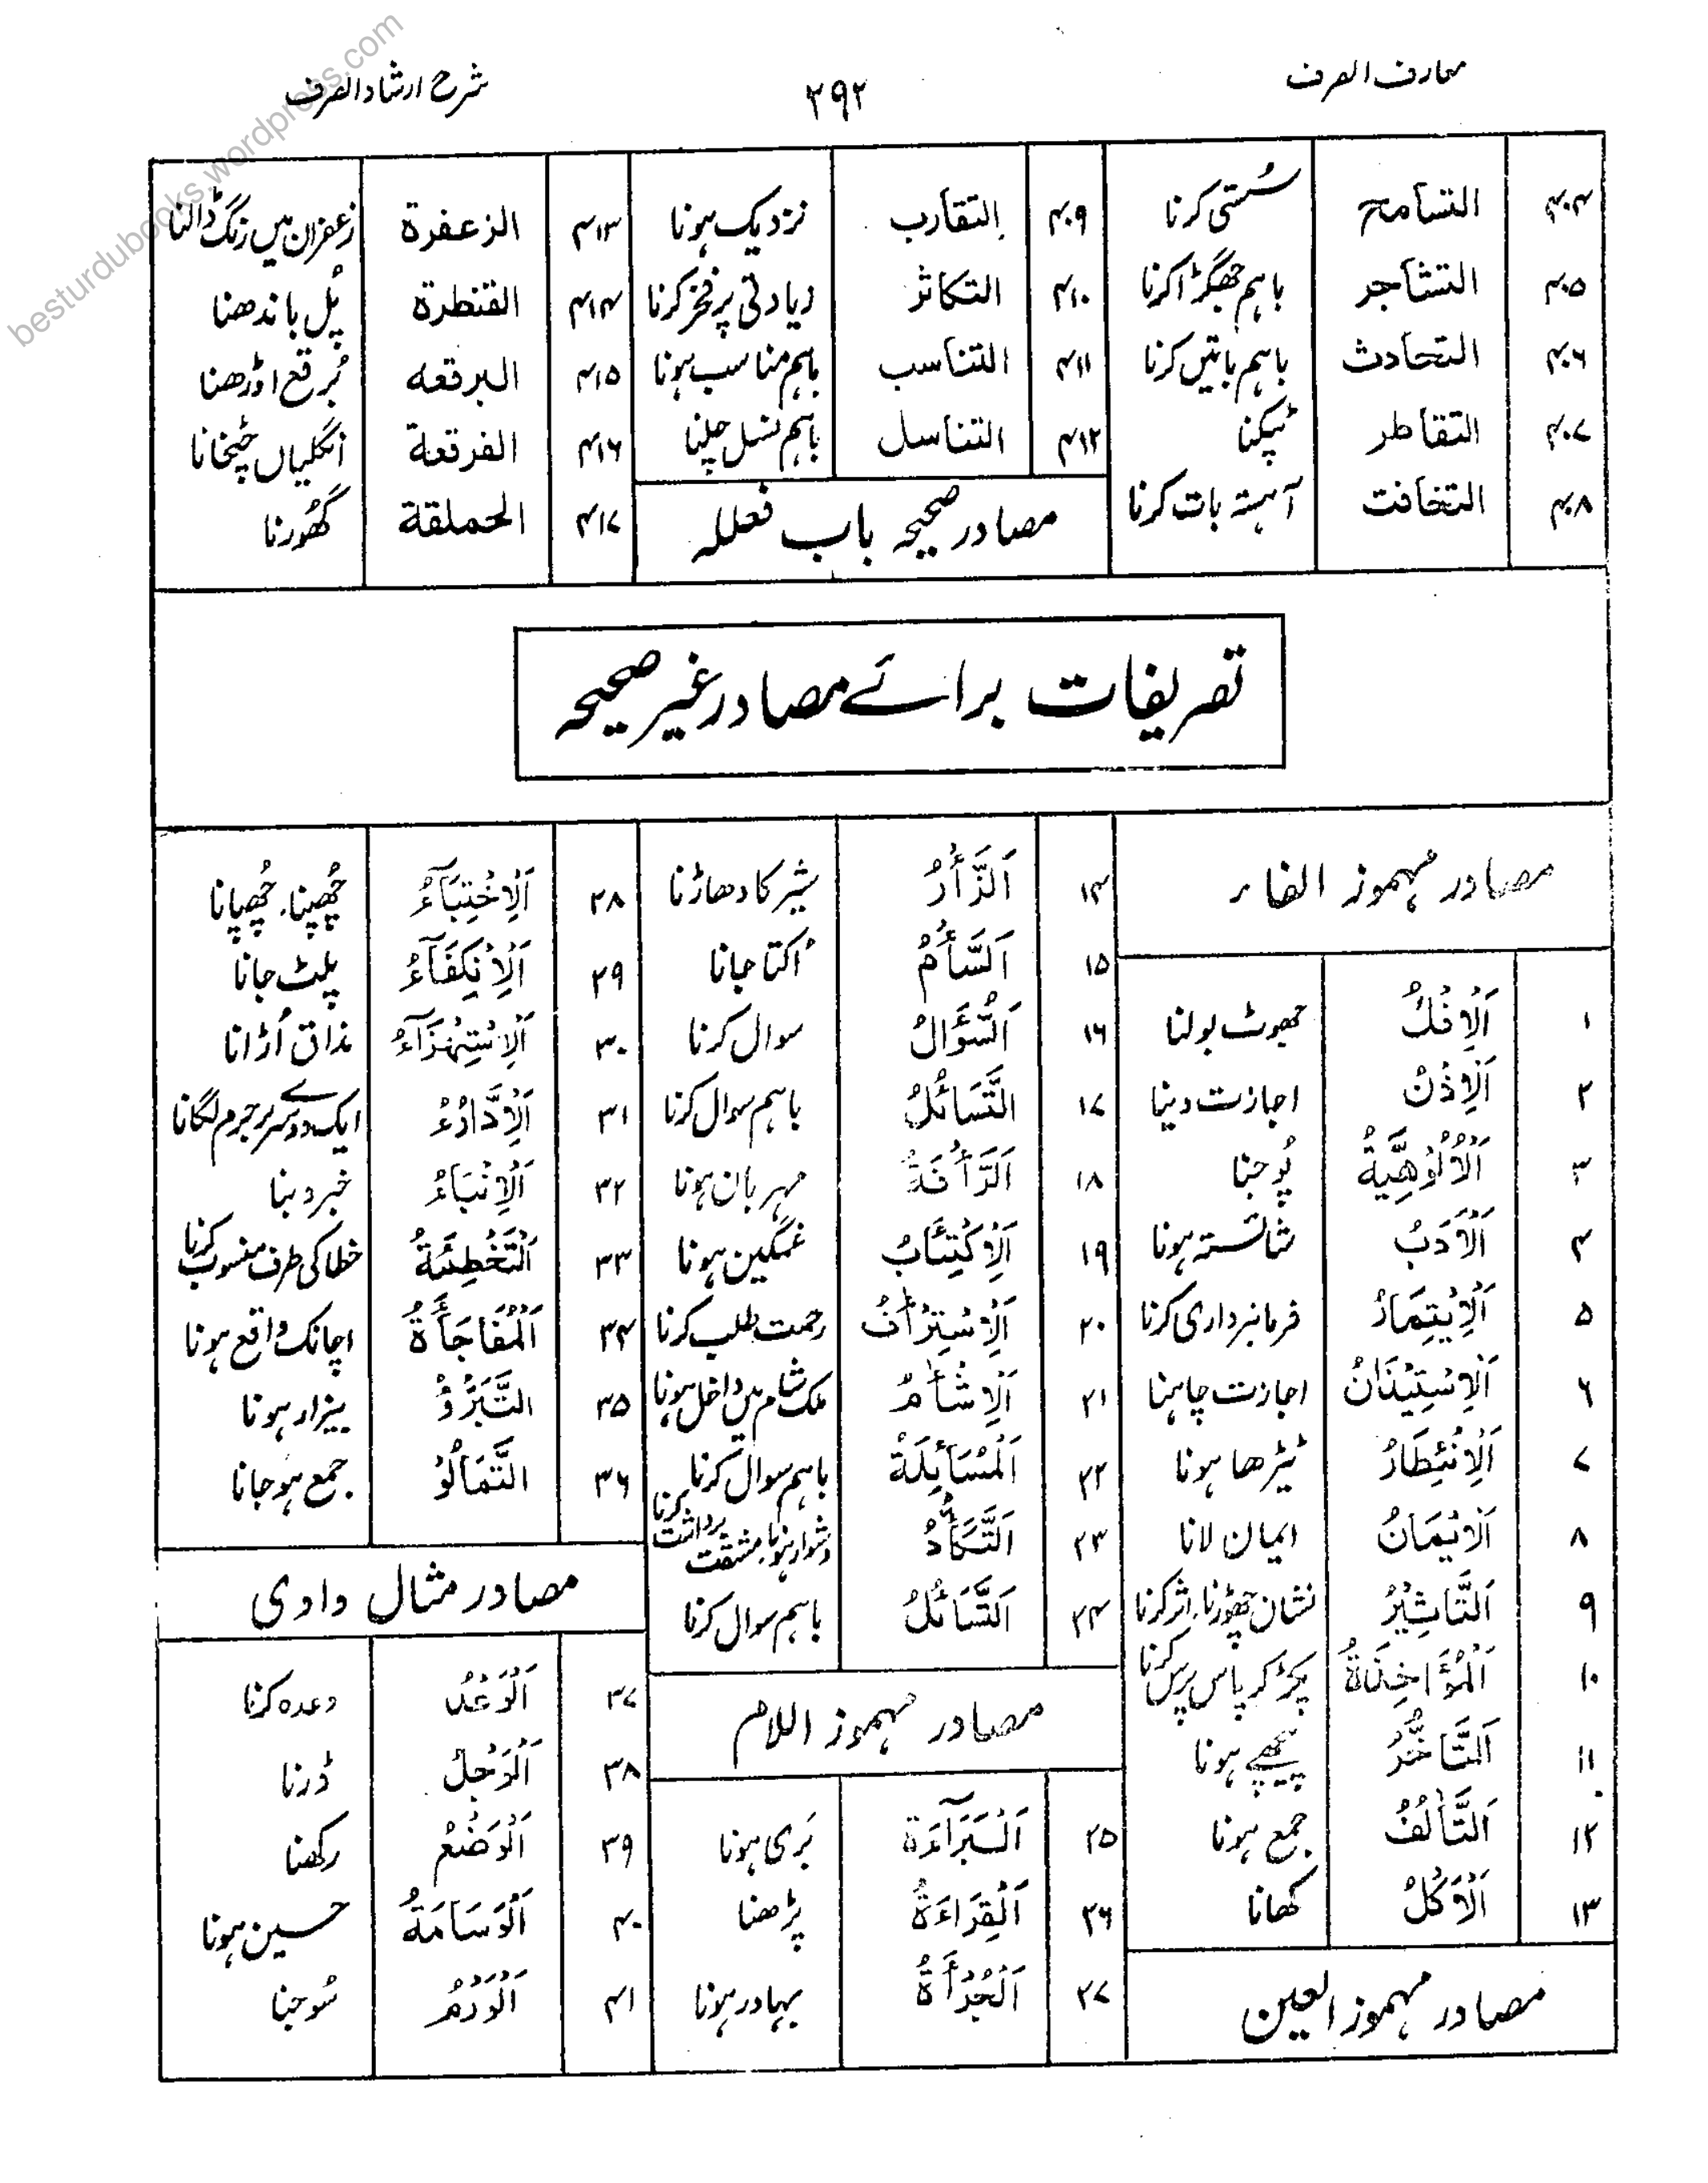 معارف الصرف
۲۹۲
شرح ارشاد الصرف
۴۰۴ التسامح سُستی کرنا
۴۰۵ التشاجر باہم جھگڑا کرنا
۴۰۶ التحادث باہم باتیں کرنا
۴۰۷ التقاطر ٹپکنا
۴۰۸ التخافت آہستہ بات کرنا
۴۰۹ التقارب نزدیک ہونا
۴۱۰ التکاثر زیادتی پر فخر کرنا
۴۱۱ التناسب باہم مناسب ہونا
۴۱۲ التناسل باہم نسل چلنا
مصادر صحیحہ باب فعللہ
۴۱۳ الزعفرة زعفران میں رنگ ڈالنا
۴۱۴ القنطرة پُل باندھنا
۴۱۵ البرقعه بُرقع اوڑھنا
۴۱۶ الفرقعة انگلیاں چٹخانا
۴۱۷ الحملقة گھُورنا
تصریفات برائے مصادر غیر صحیحہ
مصادر مہموز الفاء
۱ اَلْاِفْكُ جھوٹ بولنا
۲ اَلْاِذْنُ اجازت دینا
۳ اَلْاُلُوْهِيَّةُ پُوجنا
۴ اَلْاَدَبُ شائستہ ہونا
۵ اَلْاِيْتِمَارُ فرمانبرداری کرنا
۶ اَلْاِسْتِيْذَانُ اجازت چاہنا
۷ اَلْاِنْئِطَارُ ٹیڑھا ہونا
۸ اَلْاِيْمَانُ ایمان لانا
۹ اَلتَّاثِيْرُ نشان چھوڑنا، اثر کرنا
۱۰ اَلْمُؤَاخِذَةُ پکڑ کر پاس پرس کرنا
۱۱ اَلتَّاَخُّرُ پیچھے ہونا
۱۲ اَلتَّاٰلُفُ جمع ہونا
۱۳ اَلْاَكْلُ کھانا
مصادر مہموز العین
۱۴ اَلزَّأْرُ شیر کا دھاڑنا
۱۵ اَلسَّأْمُ اُکتا جانا
۱۶ اَلسُّؤَالُ سوال کرنا
۱۷ التَّسَائُلُ باہم سوال کرنا
۱۸ اَلرَّأْفَةُ مہربان ہونا
۱۹ اَلْاِكْتِئَابُ غمگین ہونا
۲۰ اَلْاِسْتِرْأَفُ رحمت طلب کرنا
۲۱ اَلْاِشْأَمُ ملک شام میں داخل ہونا
۲۲ اَلْمُسَائِلَةُ باہم سوال کرنا
۲۳ اَلتَّكَأُّدُ دشوار ہونا، مشقت برداشت کرنا
۲۴ اَلتَّسَائُلُ باہم سوال کرنا
مصادر مہموز اللام
۲۵ اَلْبَرَآءَة بَری ہونا
۲۶ اَلْقِرَاءَةُ پڑھنا
۲۷ اَلْجُرْأَةُ بہادر ہونا
۲۸ اَلْاِخْتِبَآءُ چُھپنا۔ چُھپانا
۲۹ اَلْاِنْكِفَآءُ پلٹ جانا
۳۰ اَلْاِسْتِهْزَآءُ مذاق اُڑانا
۳۱ اَلْاِدَّارُءُ ایک دوسرے پر جرم لگانا
۳۲ اَلْاِنْبَاءُ خبر دینا
۳۳ اَلتَّخْطِئَةُ خطا کی طرف منسوب کرنا
۳۴ اَلْمُفَاجَأَةُ اچانک واقع ہونا
۳۵ التَّبَرُّؤُ بیزار ہونا
۳۶ التَّمَالُؤُ جمع ہو جانا
مصادر مثال واوی
۳۷ اَلْوَعْدُ وعدہ کرنا
۳۸ اَلْوَجْلُ ڈرنا
۳۹ اَلْوَضْعُ رکھنا
۴۰ اَلْوَسَامَةُ حسین ہونا
۴۱ اَلْوَرْمُ سُوجنا
besturdubooks.wordpress.com